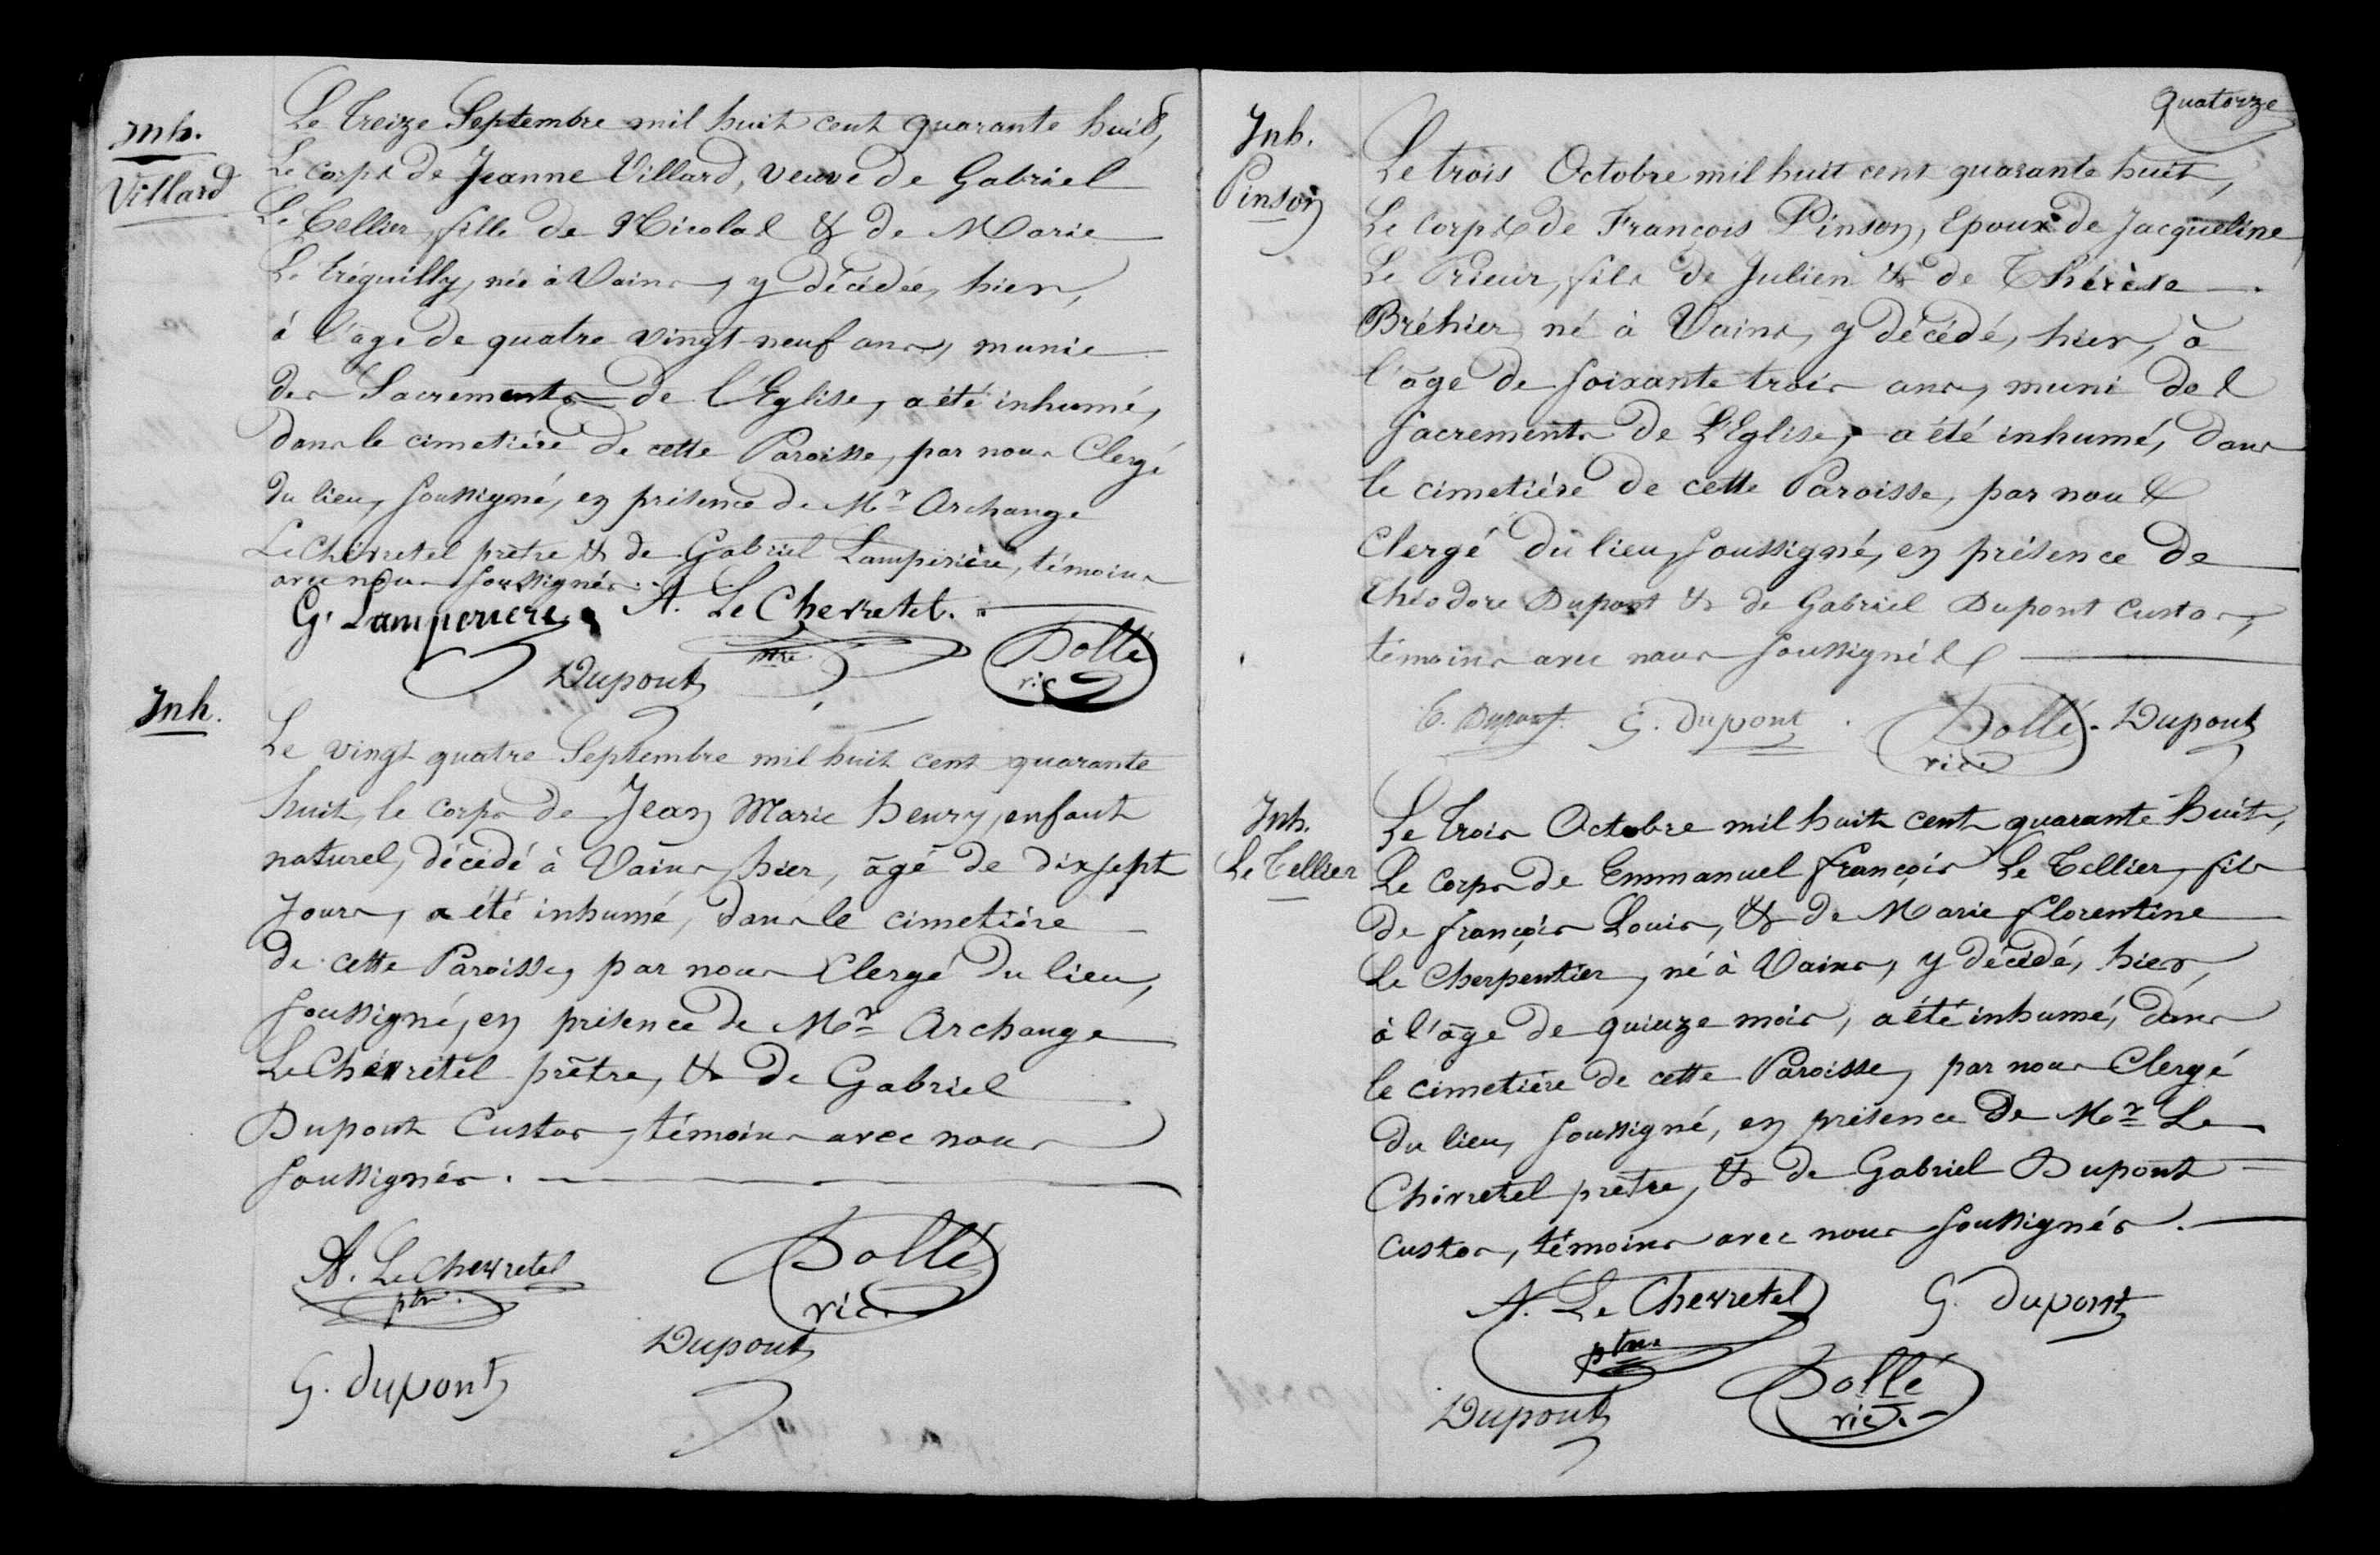 Inh.
Villard
Le treize Septembre mil huit cent quarante huit,
Le corps de Jeanne Villard, veuve de Gabriel
Le Tellier, fille de Nicolas & de Marie
Le Tréguilly, née à Vains, y décédée, hier,
à l'age de quatre vingt neuf ans, munie
des Sacrements de l'Eglise, a été inhumé,
dans le cimetière de cette Paroisse, par nous Clergé
du lieu, soussigné, en présence de Mr Archange
Le Chevretel prêtre & de Gabriel Lamperière, témoins
avec nous soussignés.
G. Lamperiere A. Le Chevretel.
ptre
Dupont
Dollé
vic
Inh.
Le vingt quatre Septembre mil huit cent quarante
huit, le corps de Jean Marie henry, enfant
naturel, décédé à Vains, hier, âgé de dix sept
jours, a été inhumé, dans le cimetière
de cette Paroisse, par nous Clergé du lieu,
soussigné, en présence de Mr Archange
Le Chevretel prêtre, & de Gabriel
Dupont Custos, témoins avec nous
soussignés.
A. Le Chevretel
ptre
Dollé
vic
Dupont
G. dupont
quatorze
Inh.
Pinson
Le trois Octobre mil huit cent quarante huit,
Le corps de François Pinson, Epoux de Jacqueline
Le Prieur, fils de Julien & de Thérèse
Bréhier, né à Vains, y décédé, hier, à
l'âge de soixante trois ans, muni des
sacrements de L'Eglise, a été inhumé, dans
le cimetière de cette Paroisse, par nous
Clergé du lieu, soussigné, en présence de
théodore Dupont & de Gabriel Dupont Custos,
témoins avec nous soussignés
G. dupont
Dollé
vic
Dupont
Inh.
Le Tellier
Le trois Octobre mil huit cent quarante huit,
Le corps de Emmanuel françois Le Tellier, fils
de françois Louis, & de Marie florentine
Le Cherpentier, né à Vains, y décédé, hier,
à l'âge de quinze mois, a été inhumé, dans
le cimetière de cette Paroisse, par nous Clergé
du lieu, soussigné, en présence de Mr Le
Chevretel prêtre, & de Gabriel Dupont
Custos, témoins avec nous soussignés.
A. Le Chevretel
ptre
G. dupont
Dupont
Dollé
vic.